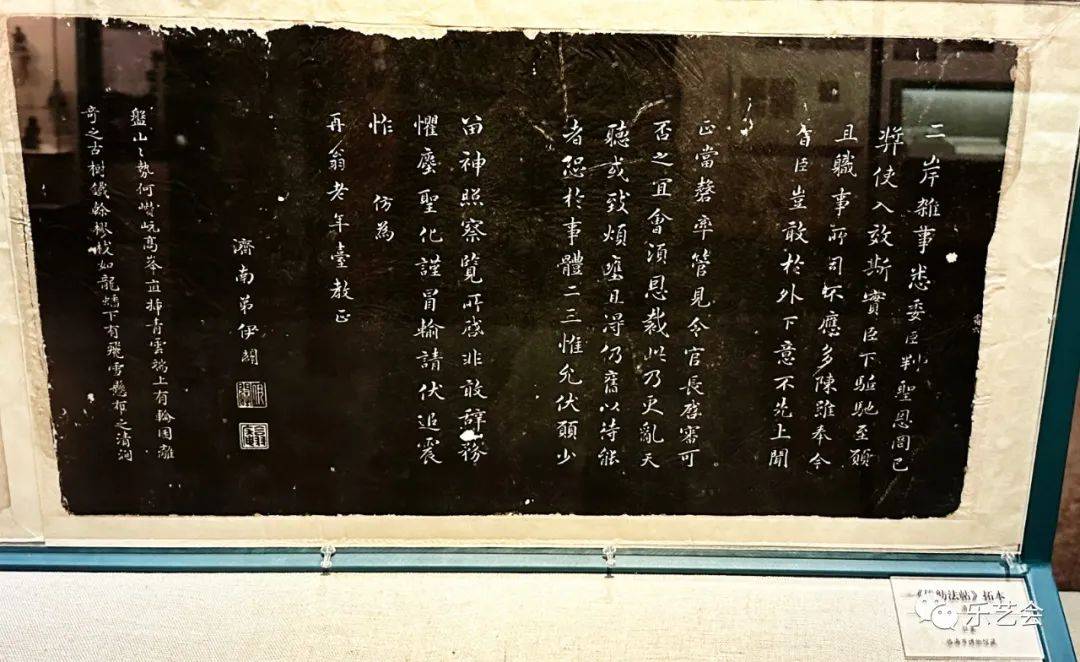 二岸雜事悉委臣判聖恩罔已
弊使入效斯實臣下驅馳至願
且職事所司不應多陳雖奉令
旨臣豈敢於外下意不先上聞
正當罄率管見令官長啓審可
否之宜會須恩裁此乃更亂天
聽或致煩壅且得仍舊以待能
者恐於事體二三惟允伏願少
留神照察覽所啓非敢辭務
懼塵聖化謹冒輸請伏追震
怍 仿為
再翁老年臺教正
濟南弟伊闢
盤山之勢何巑岏高峯直揷青雲端上有輪囷離
奇之古樹鐵榦樛枝如龍蟠下有飛雪懸布之清澗
法帖》拓本
乐艺会